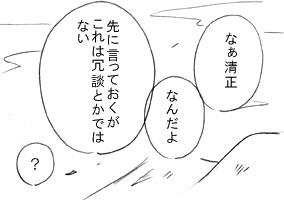 なぁ清正
なんだよ
先に言っておくが
これは冗談とかでは
ない
?